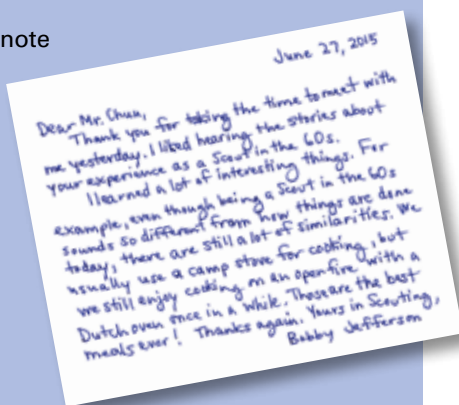 note
June 27, 2015
Dear Mr. Chun,
Thank you for taking the time to meet with
me yesterday. I liked hearing the stories about
your experience as a Scout in the 60s.
I learned a lot of interesting things. For
example, even though being a Scout in the 60s
sounds so different from how things are done
today, there are still a lot of similarities. We
usually use a camp stove for cooking, but
we still enjoy cooking on an open fire with a
Dutch oven once in a while. Those are the best
meals ever! Thanks again. Yours in Scouting,
Bobby Jefferson